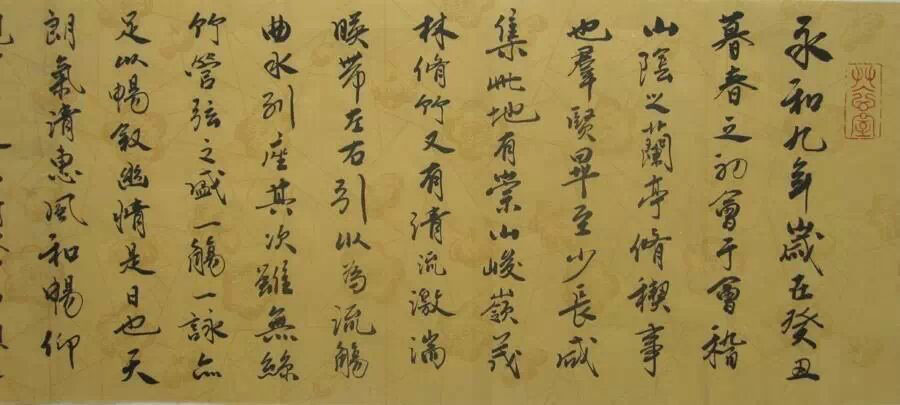 永和九年歲在癸丑
暮春之初會于會稽
山陰之蘭亭脩稧事
也羣賢畢至少長咸
集此地有崇山峻嶺茂
林脩竹又有清流激湍
暎帶左右引以為流觴
曲水列座其次雖無絲
竹管弦之盛一觴一詠亦
足以暢敘幽情是日也天
朗氣清惠風和暢仰